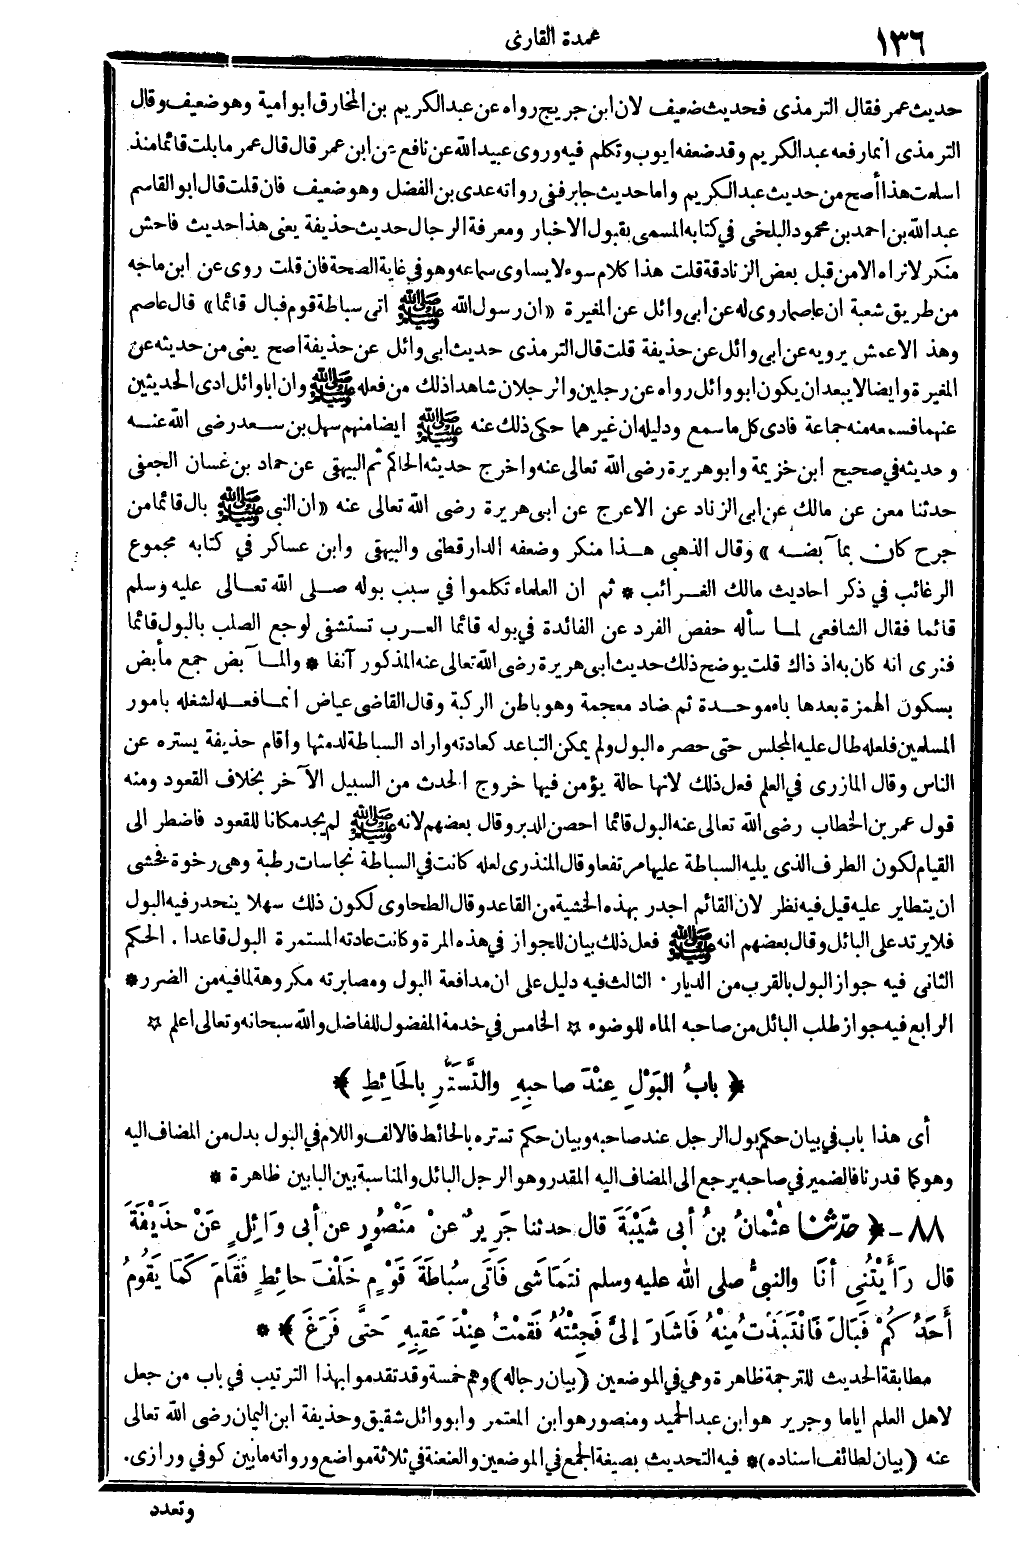 ١٣٦
عمدة القارئ
حديث عمر فقال الترمذى فحديث ضعيف لان ابن جريج رواه عن عبد الكريم بن المخارق ابو امية وهو ضعيف وقال
الترمذى انما رفعه عبد الكريم وقد ضعفه ايوب وتكلم فيه وروى عبيد الله عن نافع عن ابن عمر قال قال عمر ما بلت قائما منذ
اسلمت هذا أصح من حديث عبد الكريم واما حديث جابر ففى رواته عدى بن الفضل وهو ضعيف فان قلت قال ابو القاسم
عبد الله بن احمد بن محمود البلخى في كتابه المسمى بقبول الاخبار ومعرفة الرجال حديث حذيفة يعنى هذا حديث فاحش
منكر لا نراه الا من قبل بعض الزنادقة قلت هذا كلام سوء لا يساوى سماعه وهو في غاية الصحة فان قلت روى عن ابن ماجه
من طريق شعبة ان عاصما روى له عن ابى وائل عن المغيرة «ان رسول الله ﷺ اتى سباطة قوم فبال قائما» قال عاصم
وهذ الاعمش يرويه عن ابى وائل عن حذيفة قلت قال الترمذى حديث ابى وائل عن حذيفة اصح يعنى من حديثه عن
المغيرة وايضا لا يبعد ان يكون ابو وائل رواه عن رجلين والرجلان شاهدا ذلك من فعله ﷺ وان ابا وائل ادى الحديثين
عنهما فسمعه منه جماعة فادى كل ما سمع ودليله ان غيرهما حكى ذلك عنه ﷺ ايضا منهم سهل بن سعد رضى الله عنه
وحديثه في صحيح ابن خزيمة وابو هريرة رضى الله تعالى عنه واخرج حديثه الحاكم ثم البيهقى عن حماد بن غسان الجعفى
حدثنا معن عن مالك عن ابى الزناد عن الاعرج عن ابى هريرة رضى الله تعالى عنه «ان النبى ﷺ بال قائما من
جرح كان بمآبضه» وقال الذهبى هذا منكر وضعفه الدارقطنى والبيهقى وابن عساكر في كتابه مجموع
الرغائب في ذكر احاديث مالك الغرائب * ثم ان العلماء تكلموا في سبب بوله صلى الله تعالى عليه وسلم
قائما فقال الشافعى لما سأله حفص الفرد عن الفائدة في بوله قائما العرب تستشفى لوجع الصلب بالبول قائما
فنرى انه كان به اذ ذاك قلت يوضح ذلك حديث ابى هريرة رضى الله تعالى عنه المذكور آنفا * والمآبض جمع مأبض
بسكون الهمزة بعدها باء موحدة ثم ضاد معجمة وهو باطن الركبة وقال القاضى عياض انما فعله لشغله بامور
المسلمين فلعله طال عليه المجلس حتى حصره البول ولم يمكن التباعد كعادته واراد السباطة لدمثها واقام حذيفة يستره عن
الناس وقال المازرى في العلم فعل ذلك لانها حالة يؤمن فيها خروج الحدث من السبيل الآخر بخلاف القعود ومنه
قول عمر بن الخطاب رضى الله تعالى عنه البول قائما احصن للدبر وقال بعضهم لانه ﷺ لم يجد مكانا للقعود فاضطر الى
القيام لكون الطرف الذى يليه السباطة عليا مرتفعا وقال المنذرى لعله كانت في السباطة نجاسات رطبة وهى رخوة فخشى
ان يتطاير عليه قيل فيه نظر لان القائم اجدر بهذه الخشية من القاعد وقال الطحاوى لكون ذلك سهلا ينحدر فيه البول
فلا يرتد على البائل وقال بعضهم انه ﷺ فعل ذلك بيان للجواز في هذه المرة وكانت عادته المستمرة البول قاعدا . الحكم
الثانى فيه جواز البول بالقرب من الديار . الثالث فيه دليل على ان مدافعة البول ومصابرته مكروهة لما فيه من الضرر *
الرابع فيه جواز طلب البائل من صاحبه الماء للوضوء * الخامس في خدمة المفضول للفاضل والله سبحانه وتعالى اعلم *
﴿ بابُ البَوْلِ عِنْدَ صاحبِهِ والتَّسَتُّرِ بالحَائِطِ ﴾
أى هذا باب في بيان حكم بول الرجل عند صاحبه وبيان حكم تستره بالحائط فالالف واللام في البول بدل من المضاف اليه
وهو كما قدرنا فالضمير في صاحبه يرجع الى المضاف اليه المقدر وهو الرجل البائل والمناسبة بين البابين ظاهرة *
٨٨ - ﴿ حدّثنا عُثْمانُ بنُ أبى شَيْبَةَ قال حدثنا جَرِيرٌ عنْ مَنْصُورٍ عن أبى وَائِلٍ عَنْ حذَيْفَةَ
قال رَأَيْتُنِى أنَا والنبىُّ صلى الله عليه وسلم نتَمَاشَى فَأَتَى سُبَاطَةَ قَوْمٍ خَلْفَ حائِطٍ فَقَامَ كَمَا يَقُومُ
أَحَدُكُمْ فَبَالَ فَانْتَبَذْتُ مِنْهُ فَاشَارَ إلَىَّ فَجِئْتُهُ فَقمْتُ عِنْدَ عَقِبِهِ حَتَّى فَرَغَ ﴾ * *
مطابقة الحديث للترجمة ظاهرة وهى في الموضعين (بيان رجاله) وهم خمسة وقد تقدموا بهذا الترتيب في باب من جعل
لاهل العلم اياما وجرير هو ابن عبد الحميد ومنصور هو ابن المعتمر وابو وائل شقيق وحذيفة ابن اليمان رضى الله تعالى
عنه (بيان لطائف اسناده) * فيه التحديث بصيغة الجمع في الموضعين والعنعنة في ثلاثة مواضع ورواته ما بين كوفى ورازى.
وتعدد